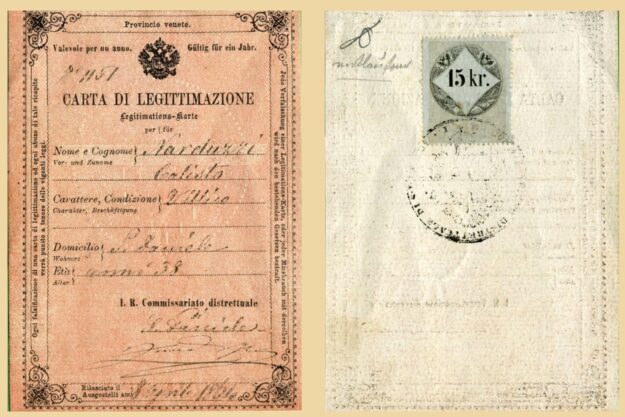 Provincie venete.
Valevole per un anno. Gültig für ein Jahr.
No 1151
CARTA DI LEGITTIMAZIONE
Legitimations-Karte
per | für
Nome e Cognome Narduzzi
Vor- und Zuname Calisto
Carattere, Condizione Villico
Charakter, Beschäftigung
Domicilio S. Daniele
Wohnort
Età anni 38
Alter
I. R. Commissariato distrettuale
di
S. Daniele
Rilasciato il
Ausgestellt am
Ogni falsificazione di una carta di legittimazione ed ogni abuso di tale ricapito
verrà punito a tenore delle vigenti leggi.
Jede Verfälschung einer Legitimations-Karte, oder jeder Missbrauch mit derselben
wird nach den bestehenden Gesetzen bestraft.
15 kr.